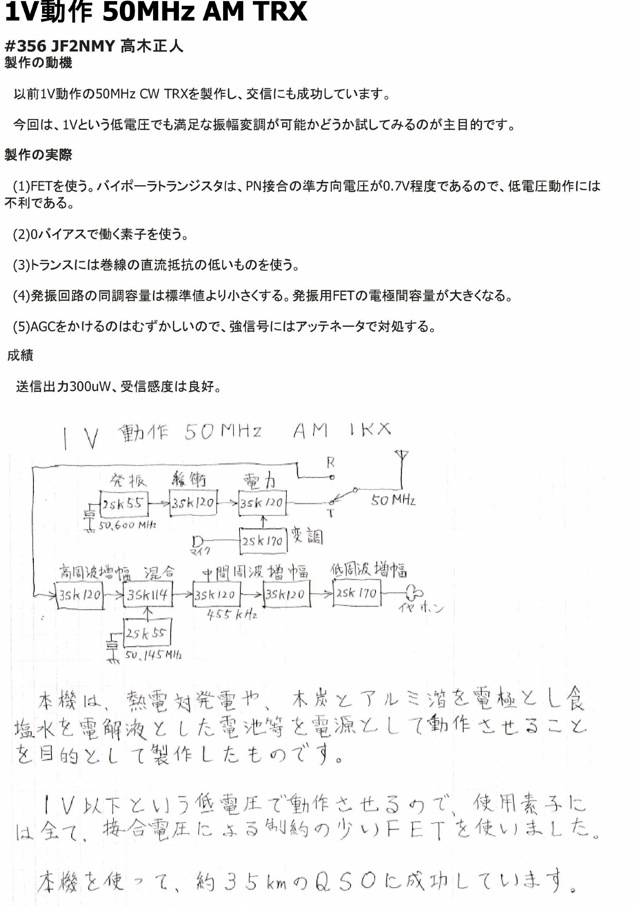 1V動作 50MHz AM TRX
#356 JF2NMY 高木正人
製作の動機
以前1V動作の50MHz CW TRXを製作し、交信にも成功しています。
今回は、1Vという低電圧でも満足な振幅変調が可能かどうか試してみるのが主目的です。
製作の実際
(1)FETを使う。バイポーラトランジスタは、PN接合の準方向電圧が0.7V程度であるので、低電圧動作には
不利である。
(2)0バイアスで働く素子を使う。
(3)トランスには巻線の直流抵抗の低いものを使う。
(4)発振回路の同調容量は標準値より小さくする。発振用FETの電極間容量が大きくなる。
(5)AGCをかけるのはむずかしいので、強信号にはアッテネータで対処する。
成績
送信出力300uW、受信感度は良好。
1V 動作 50MHz AM TRX
R
発振 緩衝 電力
2SK55 3SK120 3SK120
T
50MHz
50.600MHz
マイク
2SK170 変調
高周波増幅 混合 中間周波増幅 低周波増幅
3SK120 3SK114 3SK120 3SK120 2SK170
455kHz
イヤホン
2SK55
50.145MHz
本機は、熱電対発電や、木炭とアルミ箔を電極とし食
塩水を電解液とした電池等を電源として動作させること
を目的として製作したものです。
1V以下という低電圧で動作させるので、使用素子に
は全て、接合電圧による制約の少いFETを使いました。
本機を使って、約35kmのQSOに成功しています。